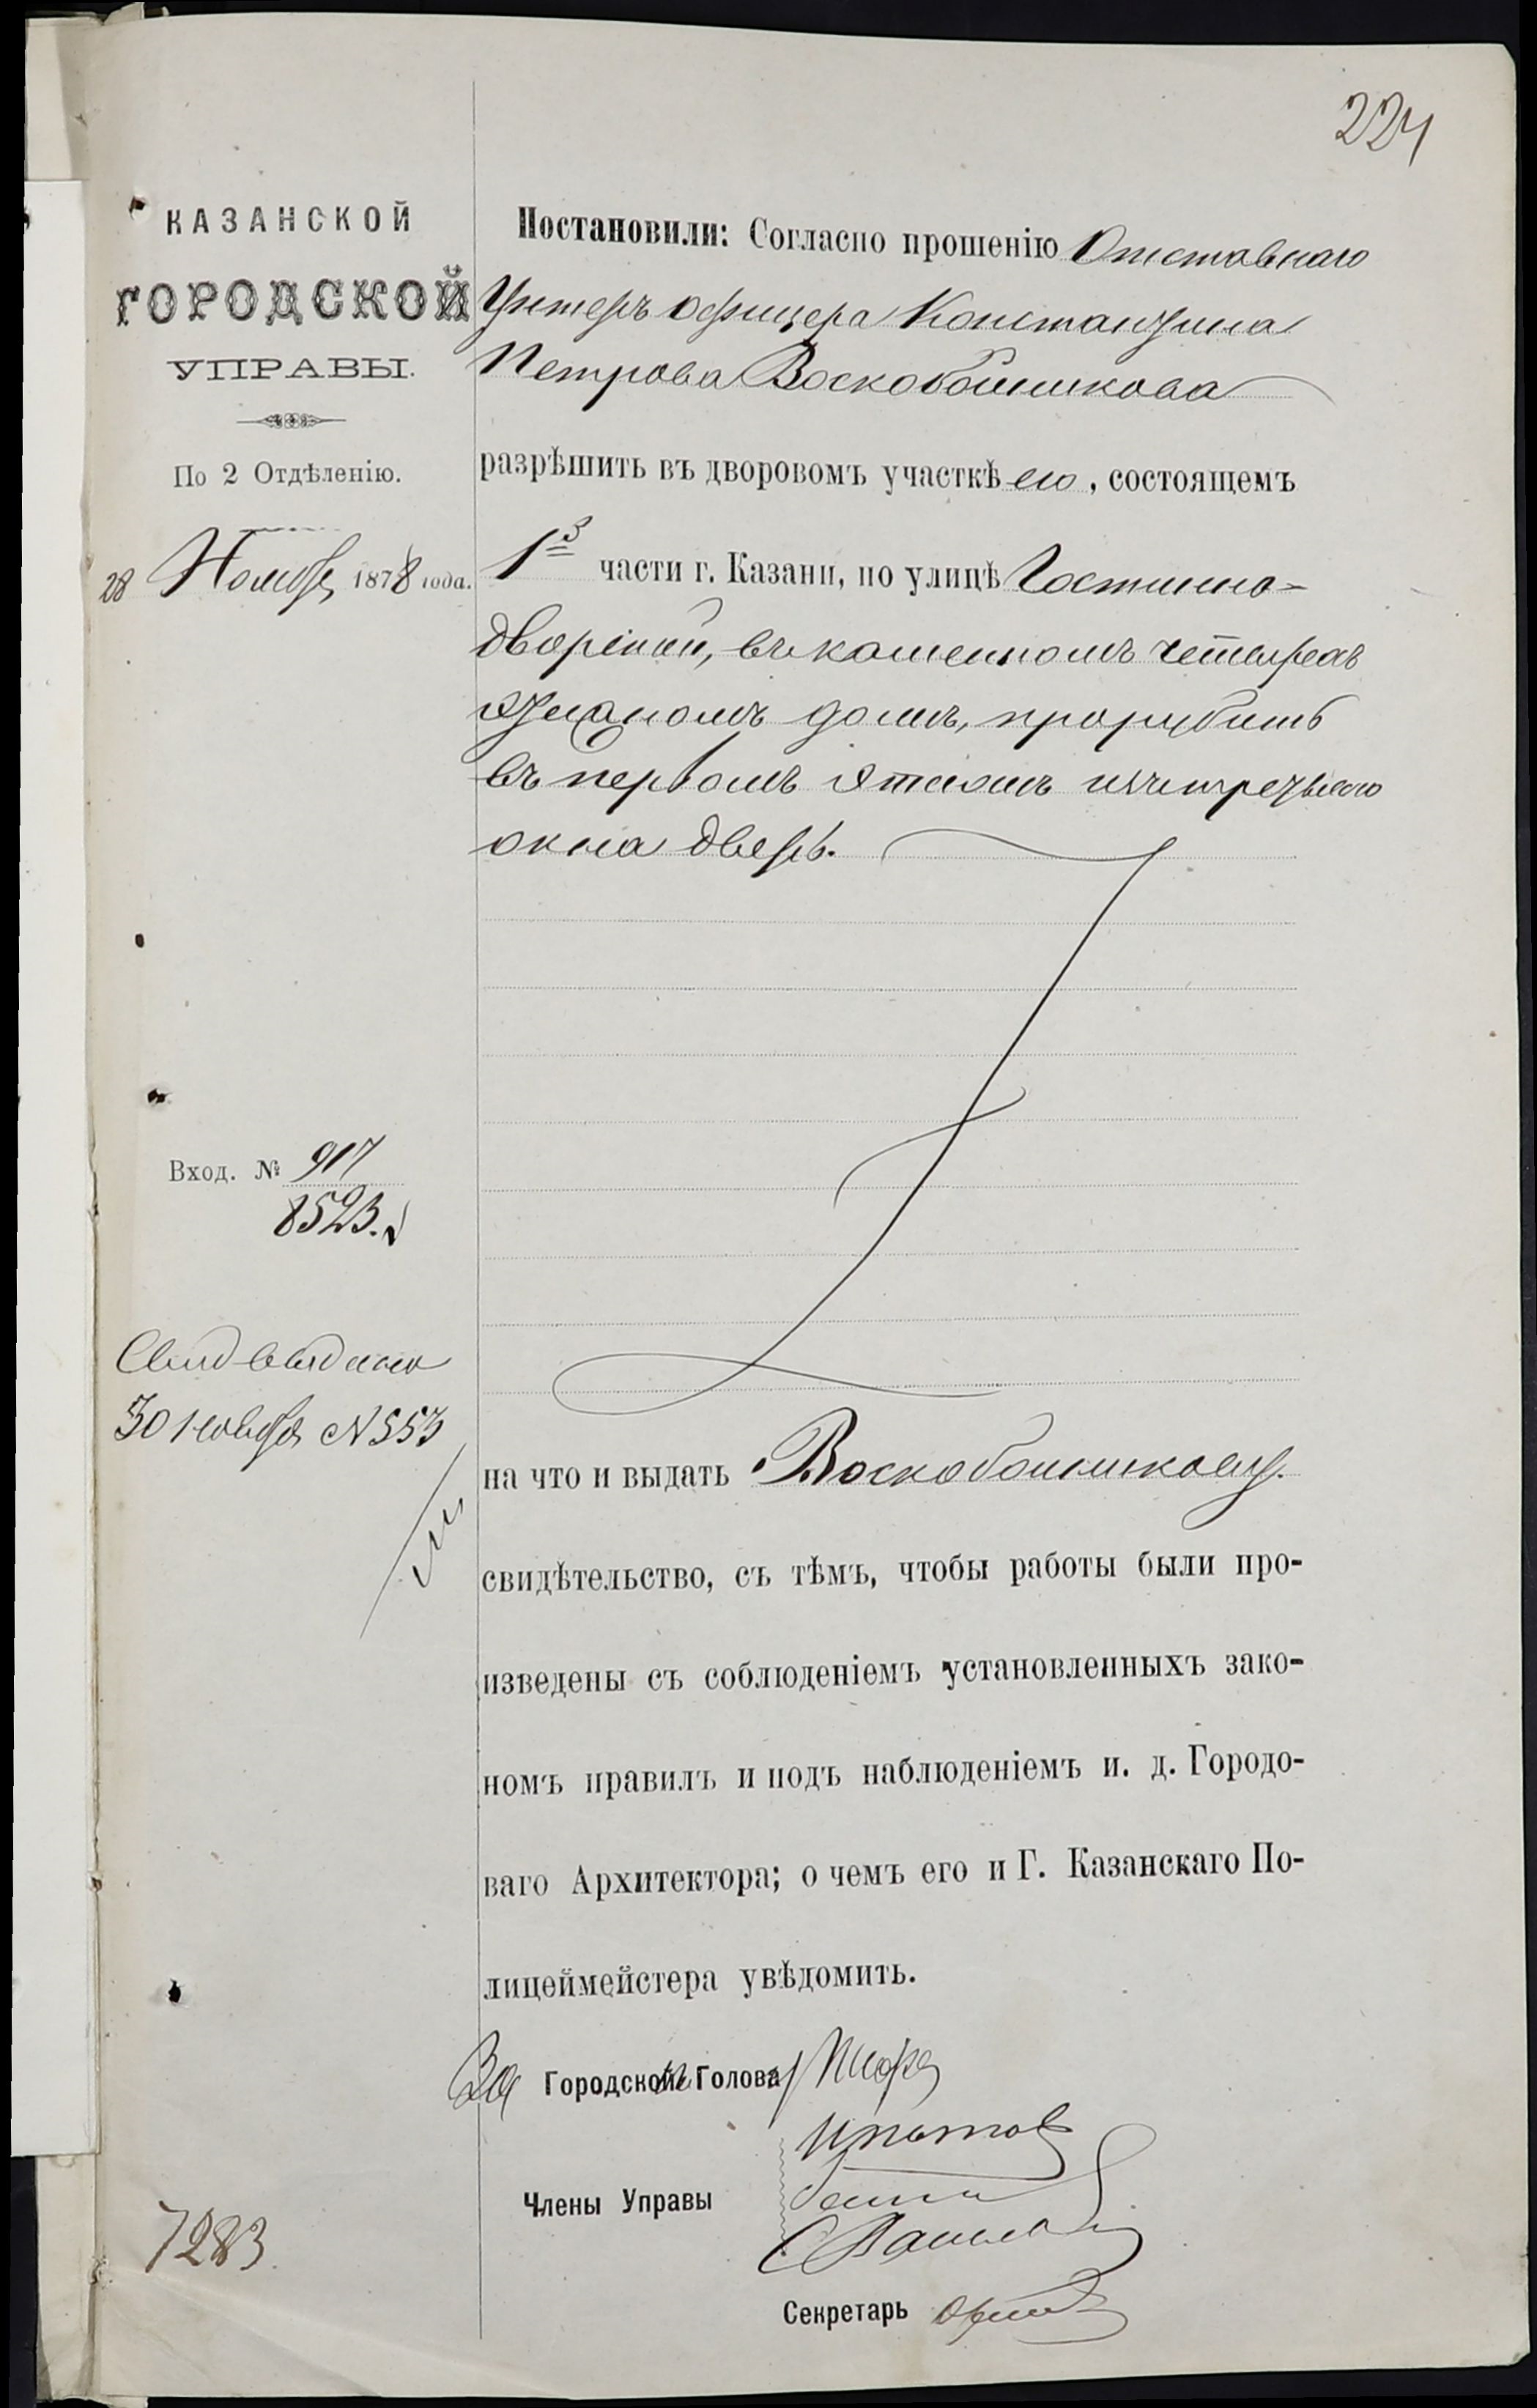 224
КАЗАНСКОЙ
ГОРОДСКОЙ
УПРАВЫ.
По 2 Отдѣленію.
28 Ноября 1878 года.
Вход. № 917
8523.
Свид выдано
30 ноября № 553
7283.
Постановили: Согласно прошенію Отставнаго
Унтеръ офицера Константина
Петрова Воскобойникова
разрѣшить въ дворовомъ участкѣ его, состоящемъ
1й части г. Казани, по улицѣ Гостинно-
дворской, въ каменномъ четырехъ
этажномъ домѣ, прорубить
въ первомъ этажѣ изъ
окна дверь.
на что и выдать Воскобойникову.
свидѣтельство, съ тѣмъ, чтобы работы были про-
изведены съ соблюденіемъ установленныхъ зако-
номъ правилъ и подъ наблюденіемъ и. д. Городо-
ваго Архитектора; о чемъ его и Г. Казанскаго По-
лицеймейстера увѣдомить.
За Городской Голова
Члены Управы
Ипатов
Секретарь